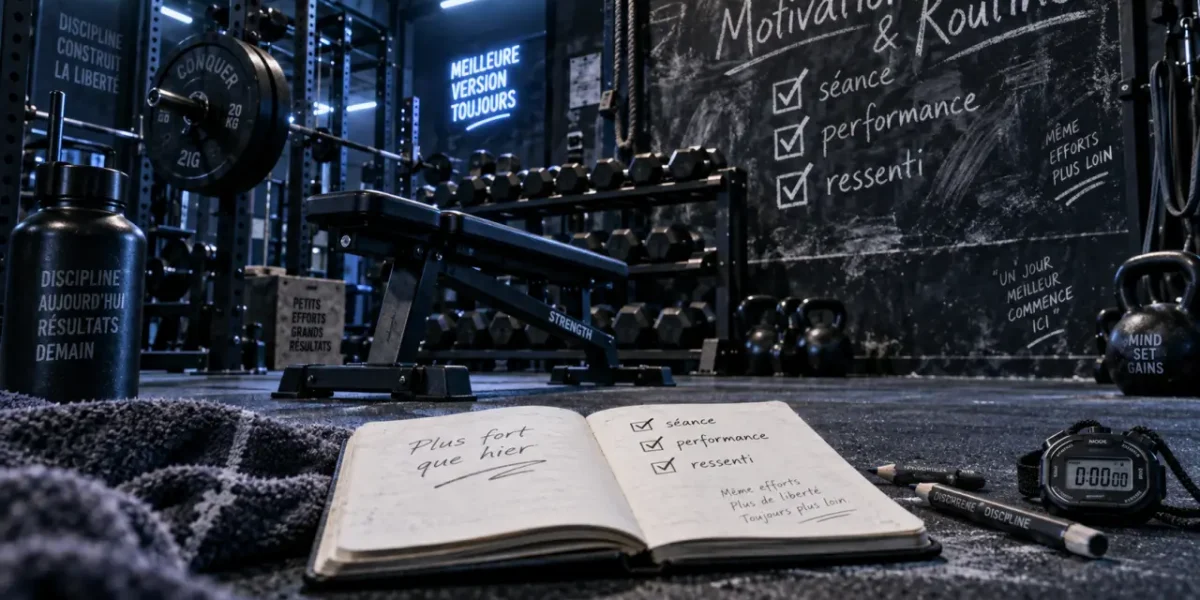 DISCIPLINE
CONSTRUIT
LA LIBERTÉ
CONQUER
20
KG
21G
MEILLEURE
VERSION
TOUJOURS
Motivation
& Routine
séance
performance
ressenti
MÊME
EFFORTS
PLUS LOIN
"UN JOUR
MEILLEUR
COMMENCE
ICI"
DISCIPLINE
AUJOURD'HUI
RÉSULTATS
DEMAIN
PETITS
EFFORTS
GRANDS
RÉSULTATS
STRENGTH
MIND
SET
GAINS
Plus fort
que hier
séance
performance
ressenti
Même efforts
Plus de liberté
Toujours plus loin.
MODE
0:0000
DISCIPLINE